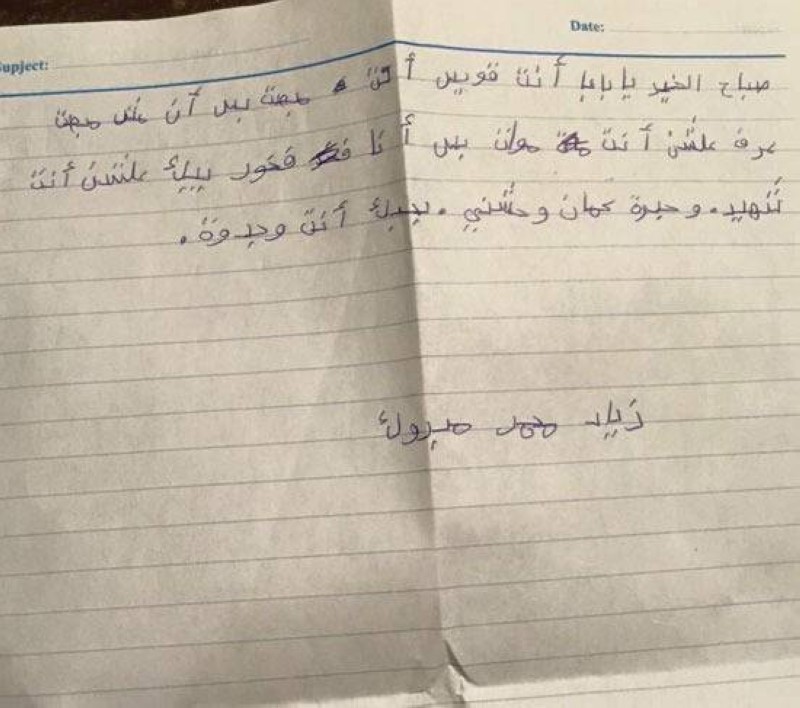 Date:
Supject:
صباح الخير يا بابا أنتَ قويس أنتَ مبعت بس أنَ مش مبعت
عرف علشن أنت موت بس أنا فخور بيك علشن أنتَ
شهيد. وحبرة كمان وحشني. بحبك أنتَ وجدوة.
زياد محمد مبروك